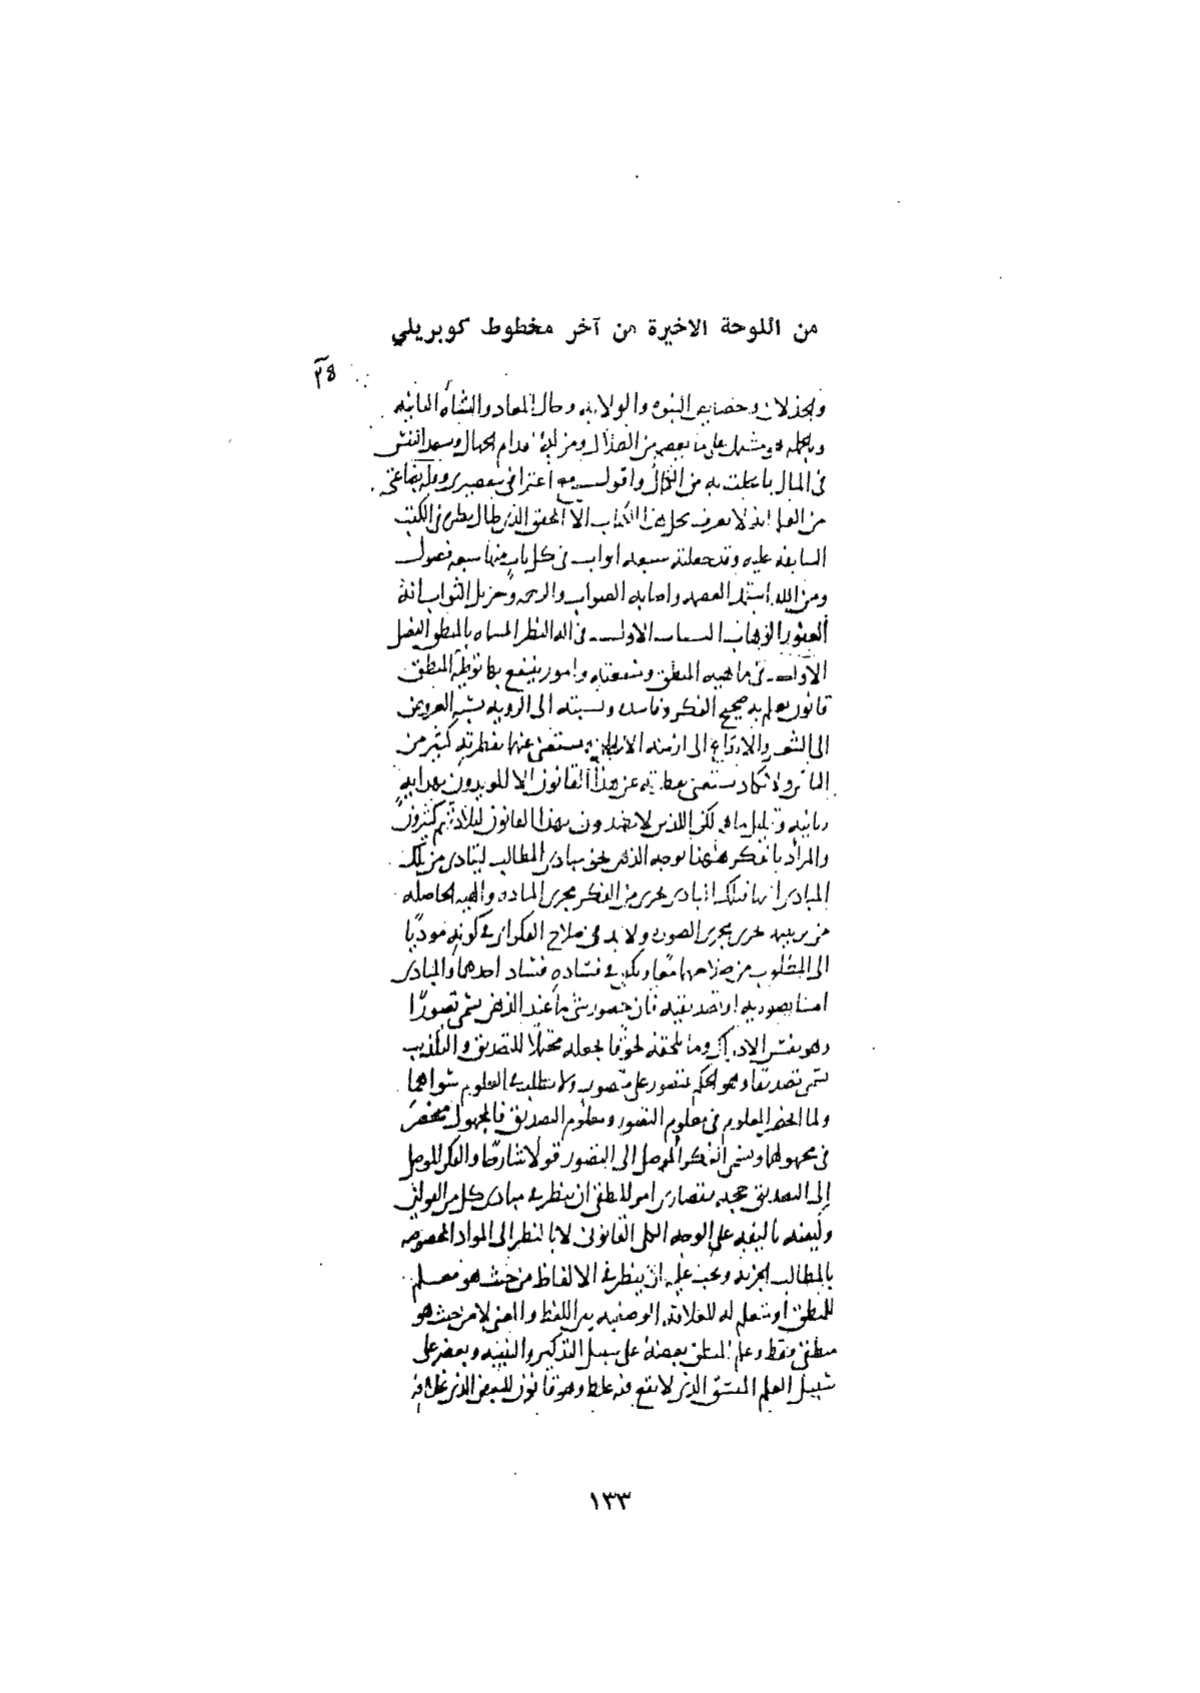 من اللوحة الاخيرة من آخر مخطوط كوبريلي
والخذلان وخصايص النبوه والولايه وحال المعاد والنشأة الثانيه
وبالجمله فهو مشتمل على ما يعصم من الضلال ومزلة اقدام الجهال
فى المال واقول مع اعترافى بتقصيرى وقلة بضاعتى
من العلم انه لا يعرف هذا الكتاب الا المحقق الذى طال نظره فى الكتب
السابقه عليه وقد جعلته سبعه ابواب فى كل باب منها سبعه فصول
ومن الله استمد العصمه واصابه الصواب والرحمه وجزيل الثواب انه
الباب الاول فى اله النظر المسماه بالمنطق الفصل
الاول فى ماهيه المنطق ومنفعته وامور ينتفع بها توطئة المنطق
قانون يعلم به صحيح الفكر وفاسده ونسبته الى الرويه نسبه العروض
الى الشعر والايقاع الى ازمنه الالحان ويستغنى عنها بفطرته كثير من
الناس ولا يكاد يستغنى بفطرته عن هذا القانون الا المويدون بهدايه
ربانيه وقليل ما هم لكن الذين لا ينقادون بهذا القانون لبلادتهم كثيرون
والمراد بالفكر ههنا توجه الذهن نحو مبادى المطالب ليتادى من تلك
المبادى اليها فتلك المبادى تجرى من الفكر مجرى الماده والهيه الحاصله
من ترتيبه تجرى مجرى الصوره ولا بد فى صلاح الفكر اى فى كونه موديا
الى المطلوب من صلاحهما معا ويكفى فى فساده فساد احدهما والمبادى
اما تصوريه او تصديقيه فان حضور شئ ما عند الذهن يسمى تصورا
وهو نفس الادراك وما يلحقه لحوقا يجعله محتملا للتصديق والتكذيب
يسمى تصديقا وهو الحكم بمتصور على متصور ولا يطلب فى العلوم سواهما
ولما انحصر المعلوم فى معلوم التصور ومعلوم التصديق فالمجهول منحصر
فى مجهولهما ويسمى الفكر الموصل الى التصور قولا شارحا والفكر الموصل
الى التصديق حجه فقصارى امر المنطقى ان ينظر فى مبادى كل من القولين
وكيفيه تاليفه على الوجه الكلى القانونى لا بالنظر الى المواد المخصوصه
بالمطالب الجزئيه ويجب عليه ان ينظر فى الالفاظ من حيث هو معلم
للمنطق او متعلم له للعلاقه الوضعيه بين اللفظ والمعنى لا من حيث هو
منطقى فقط وعلم المنطق بعضه على سبيل التذكير والتنبيه وبعضه على
سبيل العلم المتسق الذى لا يقع فيه غلط وهو قانون للبعض الذى
١٣٣